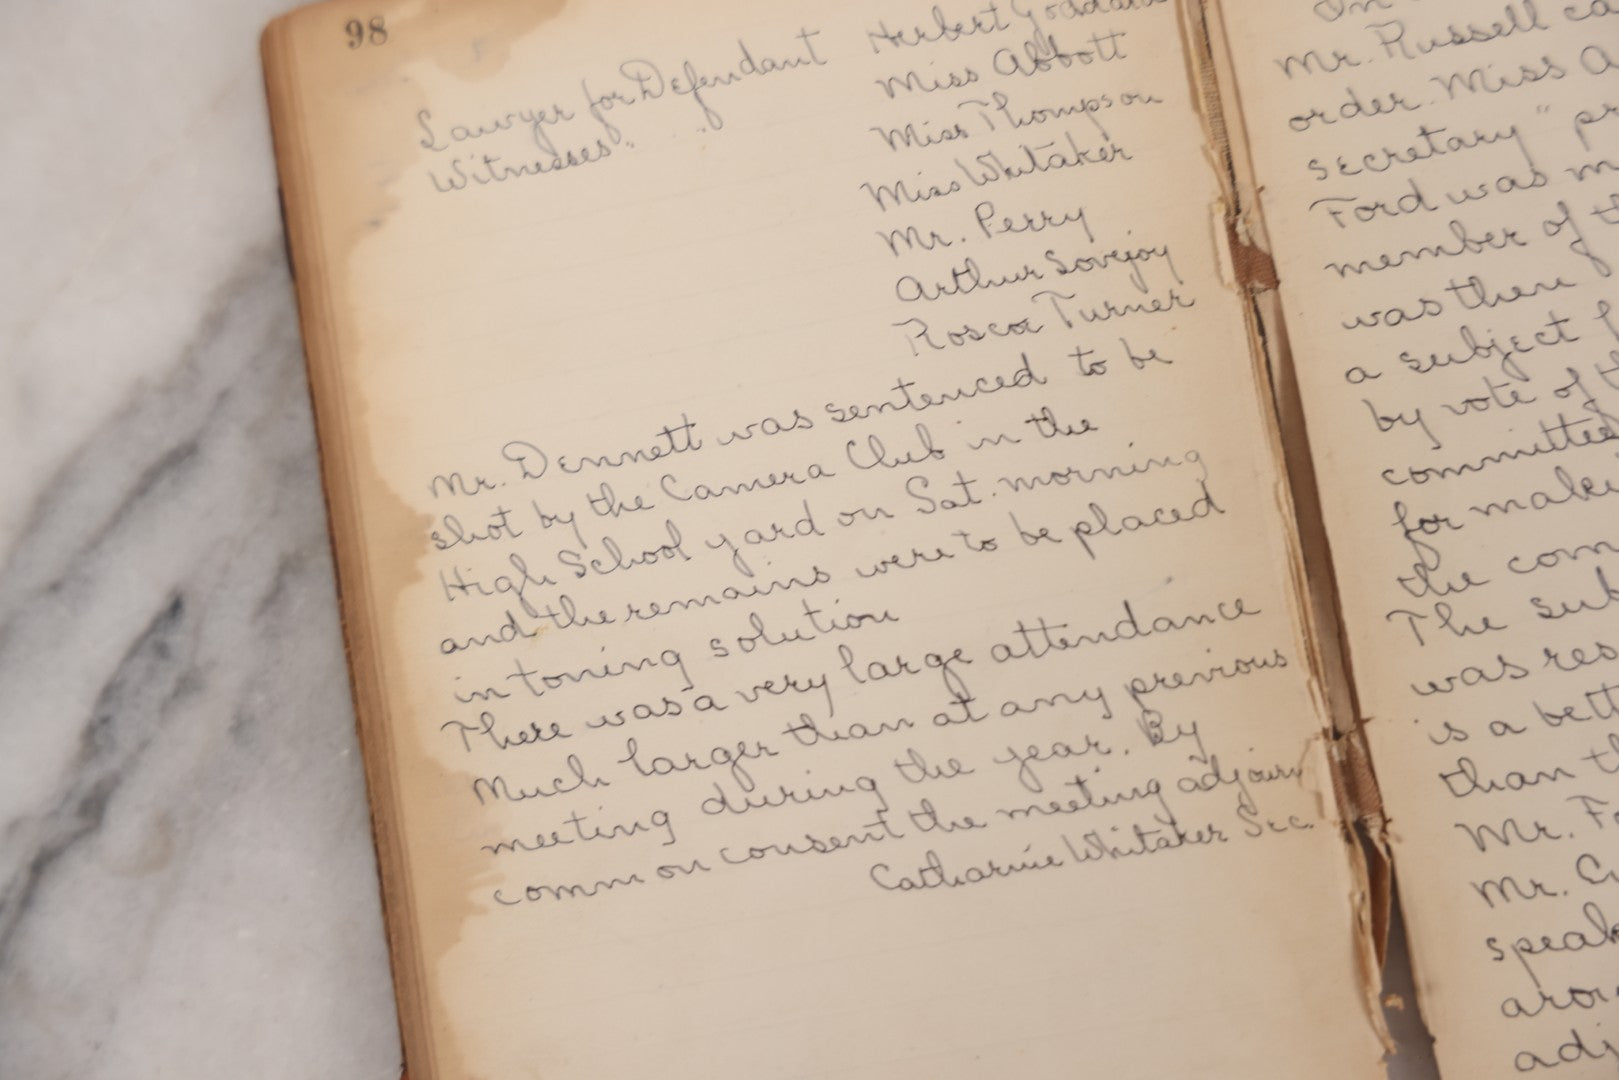 98
Lawyer for Defendant Herbert Goddard
Witnesses " " Miss Abbott
Miss Thompson
Miss Whitaker
Mr. Perry
Arthur Lovejoy
Roscoe Turner
Mr. Dennett was sentenced to be
shot by the Camera Club in the
High School yard on Sat. morning
and the remains were to be placed
in toning solution
There was a very large attendance
Much larger than at any previous
meeting during the year. By
common consent the meeting adjourn
Catharine Whitaker Sec.
Mr. Russell
order. Miss
secretary"
Ford was
member of
was then
a subject
by vote of
committee
for
the
The
was
is a
than
Mr.
Mr.